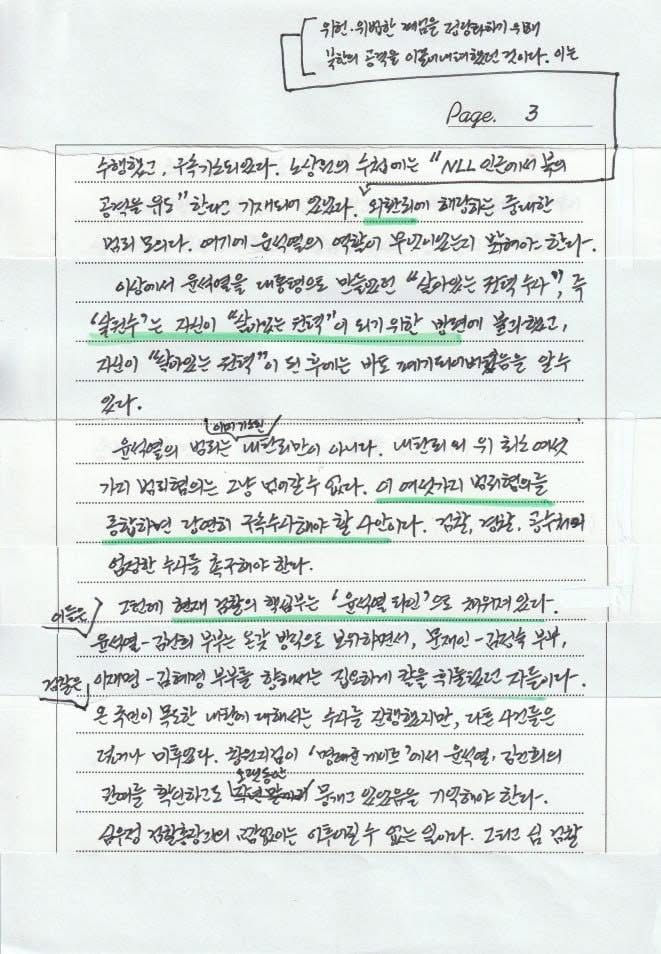 위헌·위법한 계엄을 정당화하기 위해
북한의 공격을 이끌어내려했던 것이다. 이는
Page. 3
수행했고, 구속기소되었다. 노상원의 수첩에는 “NLL 인근에서 북의
공격을 유도”한다고 기재되어 있었다. 외환죄에 해당하는 중대한
범죄 모의다. 여기에 윤석열의 역할이 무엇이었는지 밝혀야 한다.
이상에서 윤석열을 대통령으로 만들었던 “살아있는 권력 수사”, 즉
‘살권수’는 자신이 “살아있는 권력”이 되기 위한 방편에 불과했고,
자신이 “살아있는 권력”이 된 후에는 바로 폐기되어버렸음을 알 수
있다.
이미 기소된
윤석열의 범죄는 내란죄만이 아니다. 내란죄 외 위 최소 여섯
가지 범죄혐의는 그냥 넘어갈 수 없다. 이 여섯가지 범죄혐의를
종합하면 당연히 구속수사해야 할 사안이다. 검찰, 경찰, 공수처의
엄정한 수사를 촉구해야 한다.
그런데 현재 검찰의 핵심부는 ‘윤석열 라인’으로 채워져 있다.
이들은
윤석열-김건희 부부는 온갖 방식으로 보위하면서, 문재인-김정숙 부부,
이재명-김혜경 부부를 향해서는 집요하게 칼을 휘둘렀던 자들이다.
검찰은
온 국민이 목도한 내란에 대해서는 수사를 진행했지만, 다른 사건들은
덮거나 미루었다. 창원지검이 ‘명태균 게이트’에서 윤석열, 김건희의
오랫동안
관여를 확인하고도 작년 말까지 뭉개고 있었음을 기억해야 한다.
심우정 검찰총장과의 교감없이는 이루어질 수 없는 일이다. 그리고 심 검찰